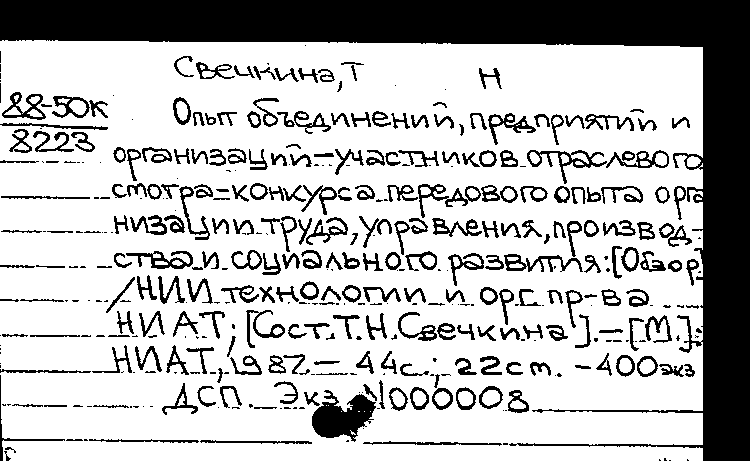 Свечкина, Т Н
88-50к
8223
Опыт объединений, предприятий и
организаций-участников отраслевого
смотра-конкурса передового опыта орга
низации труда, управления, производ-
ства и социального развития: [Обзор]
/НИИ технологии и орг. пр-ва
НИАТ; [Сост. Т.Н. Свечкина]. — [М.]:
НИАТ, 1987. — 44с.; 22см. - 400экз
ДСП. Экз N000008